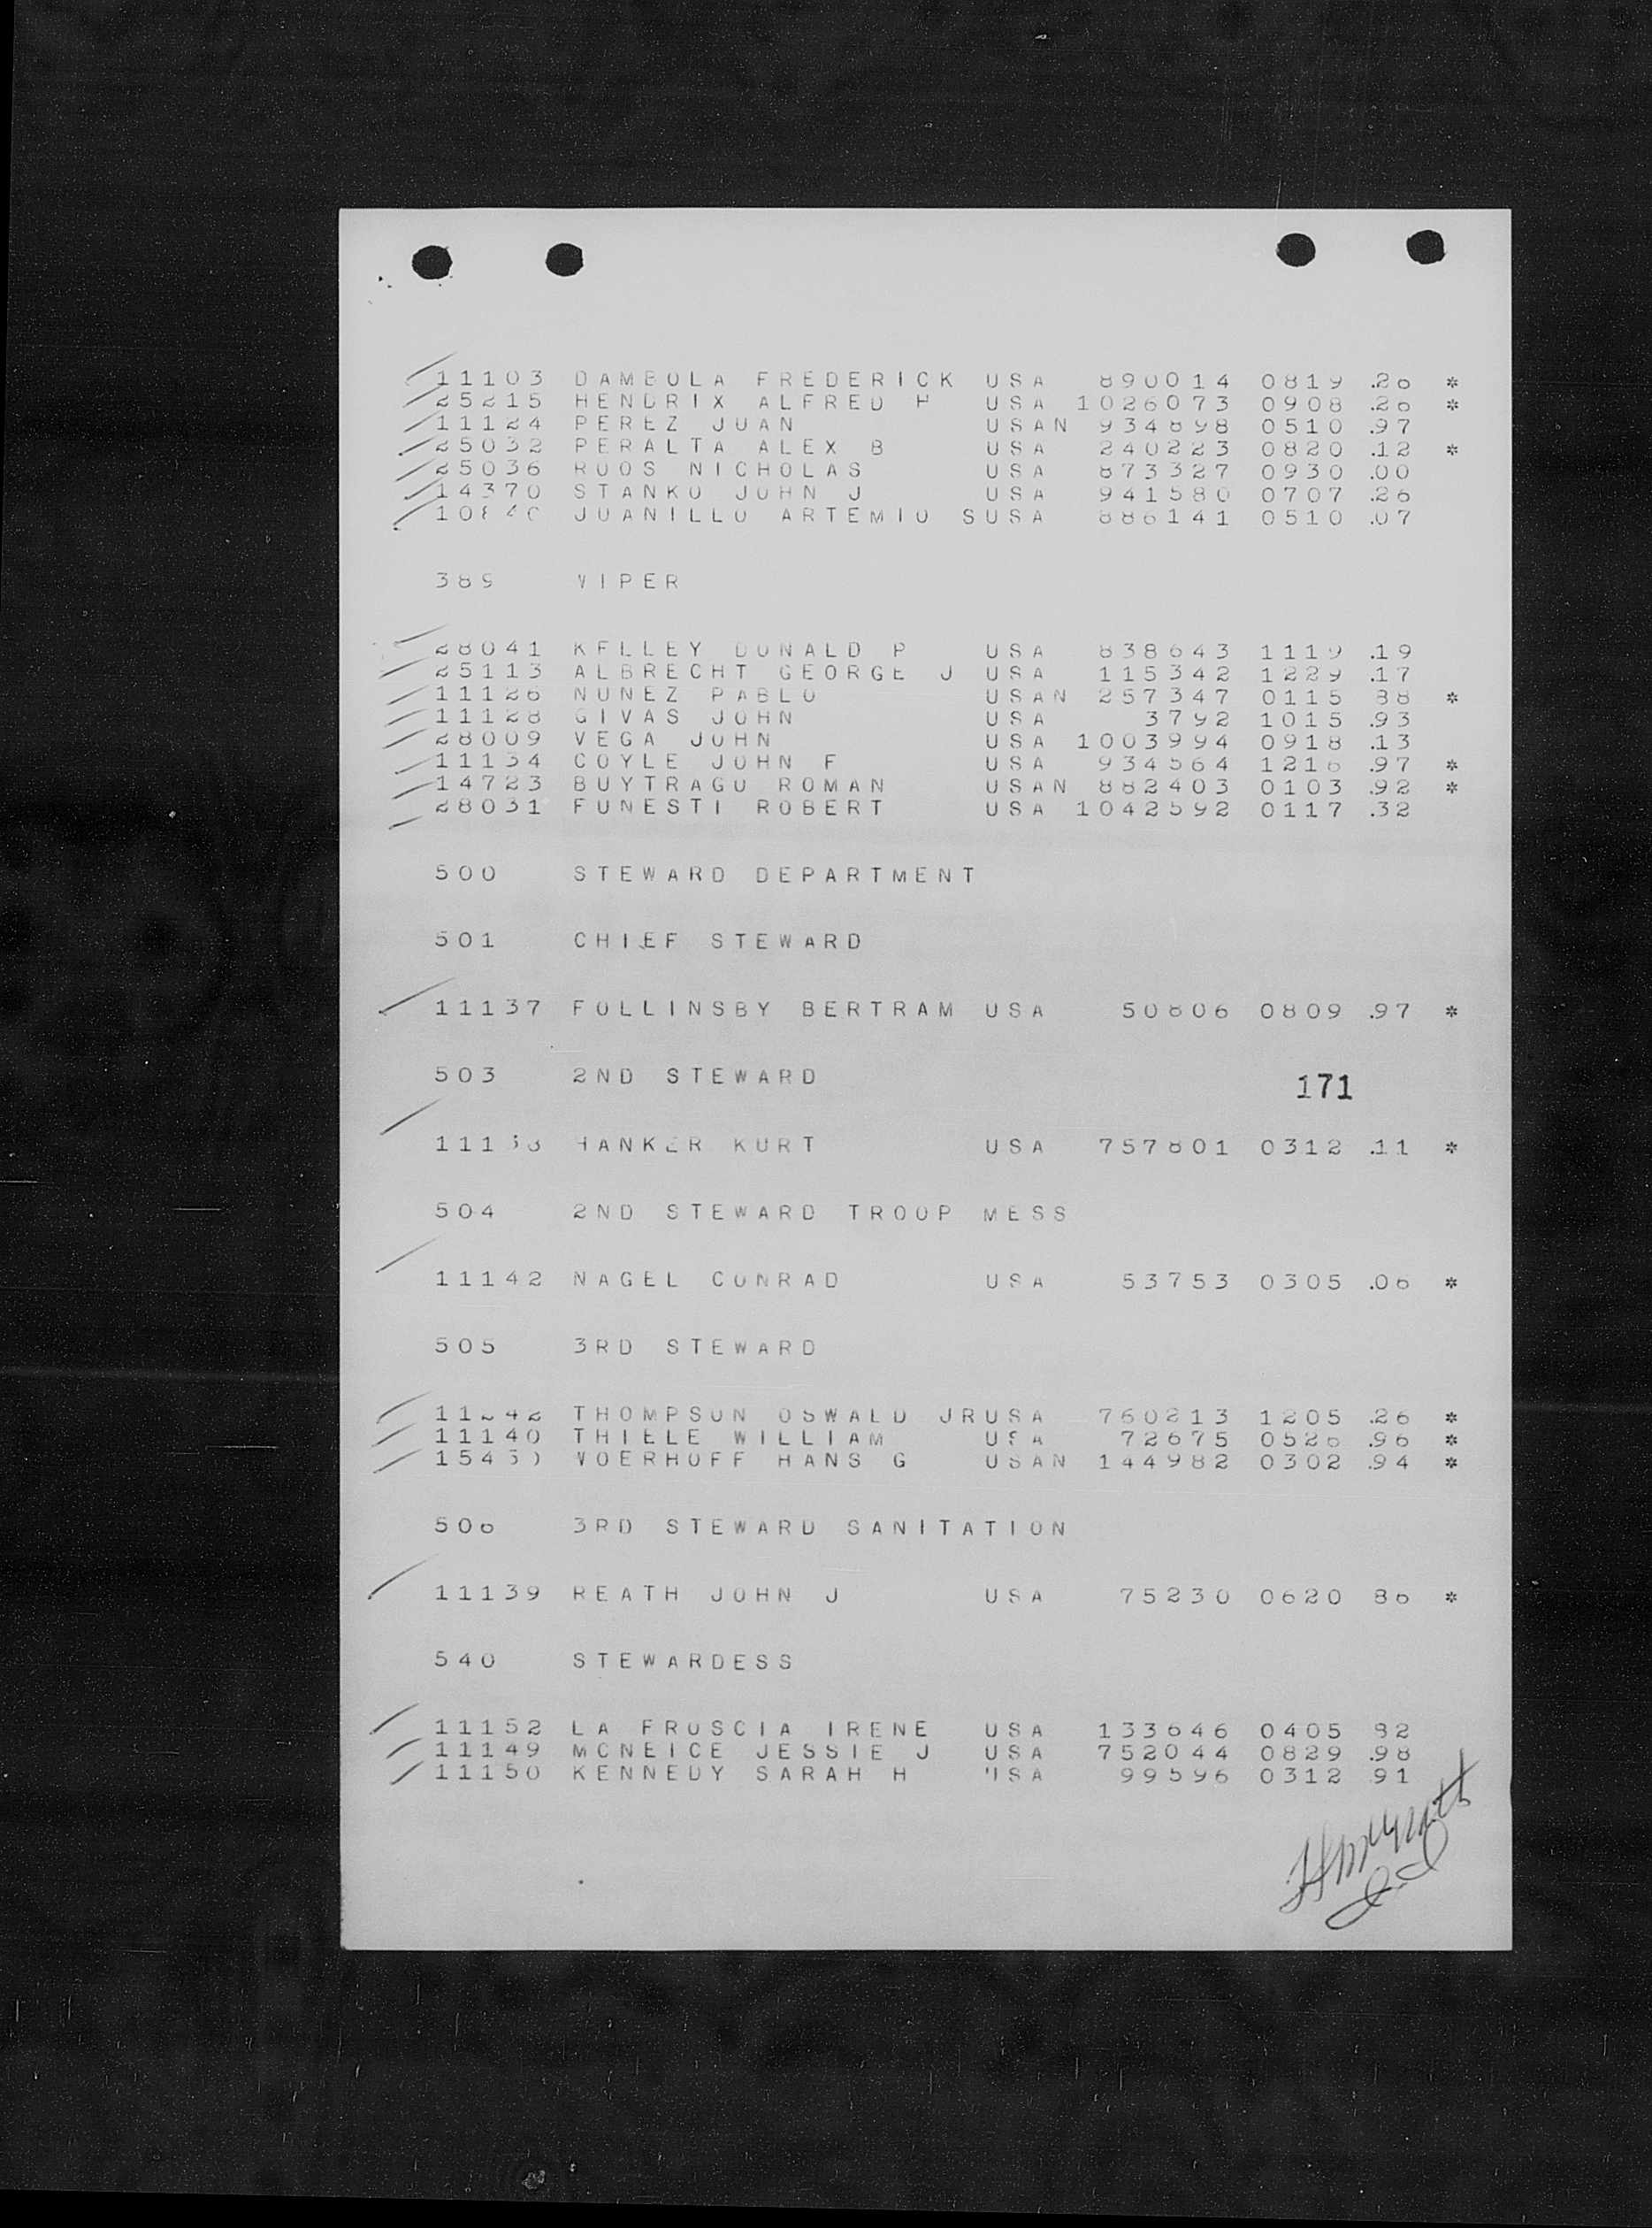 11103 DAMBOLA FREDERICK USA 890014 0819 .26 *
25215 HENDRIX ALFRED H USA 1026073 0908 .26 *
11124 PEREZ JUAN USAN 934898 0510 .97
25032 PERALTA ALEX B USA 240223 0820 .12 *
25036 ROOS NICHOLAS USA 873327 0930 .00
14370 STANKO JOHN J USA 941580 0707 .26
10840 JUANILLO ARTEMIO SUSA 886141 0510 .07
389 VIPER
28041 KELLEY DONALD P USA 838643 1119 .19
25113 ALBRECHT GEORGE J USA 115342 1229 .17
11126 NUNEZ PABLO USAN 257347 0115 88 *
11128 GIVAS JOHN USA 3792 1015 .93
28009 VEGA JOHN USA 1003994 0918 .13
11134 COYLE JOHN F USA 934564 1216 .97 *
14723 BUYTRAGO ROMAN USAN 882403 0103 .92 *
28031 FUNESTI ROBERT USA 1042592 0117 .32
500 STEWARD DEPARTMENT
501 CHIEF STEWARD
11137 FOLLINSBY BERTRAM USA 50806 0809 .97 *
503 2ND STEWARD
171
11138 HANKER KURT USA 757801 0312 .11 *
504 2ND STEWARD TROOP MESS
11142 NAGEL CONRAD USA 53753 0305 .06 *
505 3RD STEWARD
THOMPSON OSWALD JRUSA 760213 1205 .26 *
11140 THIELE WILLIAM USA 72675 0526 .96 *
VOERHOFF HANS G USAN 144982 0302 .94 *
506 3RD STEWARD SANITATION
11139 REATH JOHN J USA 75230 0620 86 *
540 STEWARDESS
11152 LA FRUSCIA IRENE USA 133646 0405 92
11149 MCNEICE JESSIE J USA 752044 0829 .98
11150 KENNEDY SARAH H USA 99596 0312 91